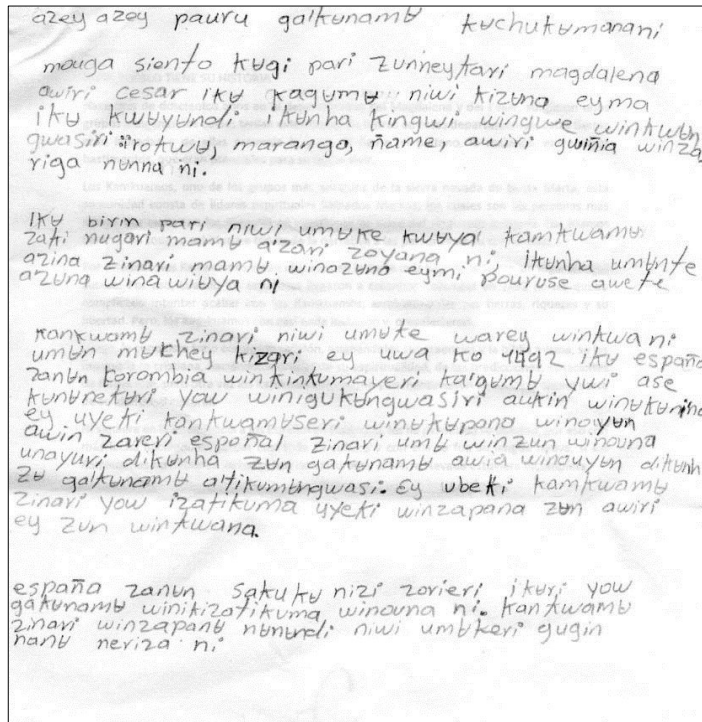 azey azey pauru ga'kʉnamʉ kʉchukʉmanani
mouga siento kʉgi pari zunneykari magdalena
awiri cesar ikʉ kagʉmʉ niwi kizʉna eyma
ikʉ kwʉyʉndi ikʉnha kingwi wingwe winkwʉn
gwasiri ïrokwʉ, marango, ñame, awiri gwiñia winza
riga nʉnna ni.
ikʉ birin pari niwi umʉke kwʉya' kamkwamʉ
zaki nugari mamʉ a'zari zoyana ni, ikʉnha umʉnte
azina zinari mamʉ winazʉna eymi pouruse awete
a'zʉna winawibʉya ni
kankwamʉ zinari niwi umʉke warey winkwa ni
umʉn mʉchey kizari ey uwa ko 1492 ikʉ españa
zanʉn korombia winkinkumayeri ka'gʉmʉ ywi ase
kʉnʉnekʉri yow winigukʉngwasiri aukin winʉkʉnina
ey uyeki kankwamʉseri winʉkʉpano winoyʉn
awin zareri español zinari umʉ winzʉn winouna
unayuri dikʉnha zʉn gakʉnamʉ awia winouyʉn dikʉnh
zʉ ga'kʉnamʉ a'tikumʉngwasi. Ey ʉbeki kamkwamʉ
zinari yow izatikuma uyeki winzapana zʉn awiri
ey zʉn winkwana.
españa zanʉn sakukʉ nizi zorieri ikʉri yow
gakʉnamʉ winikizatikuma winouna ni. kankwamʉ
zinari winzapanʉ nʉnʉndi niwi umʉkeri gugin
nanʉ neriza ni